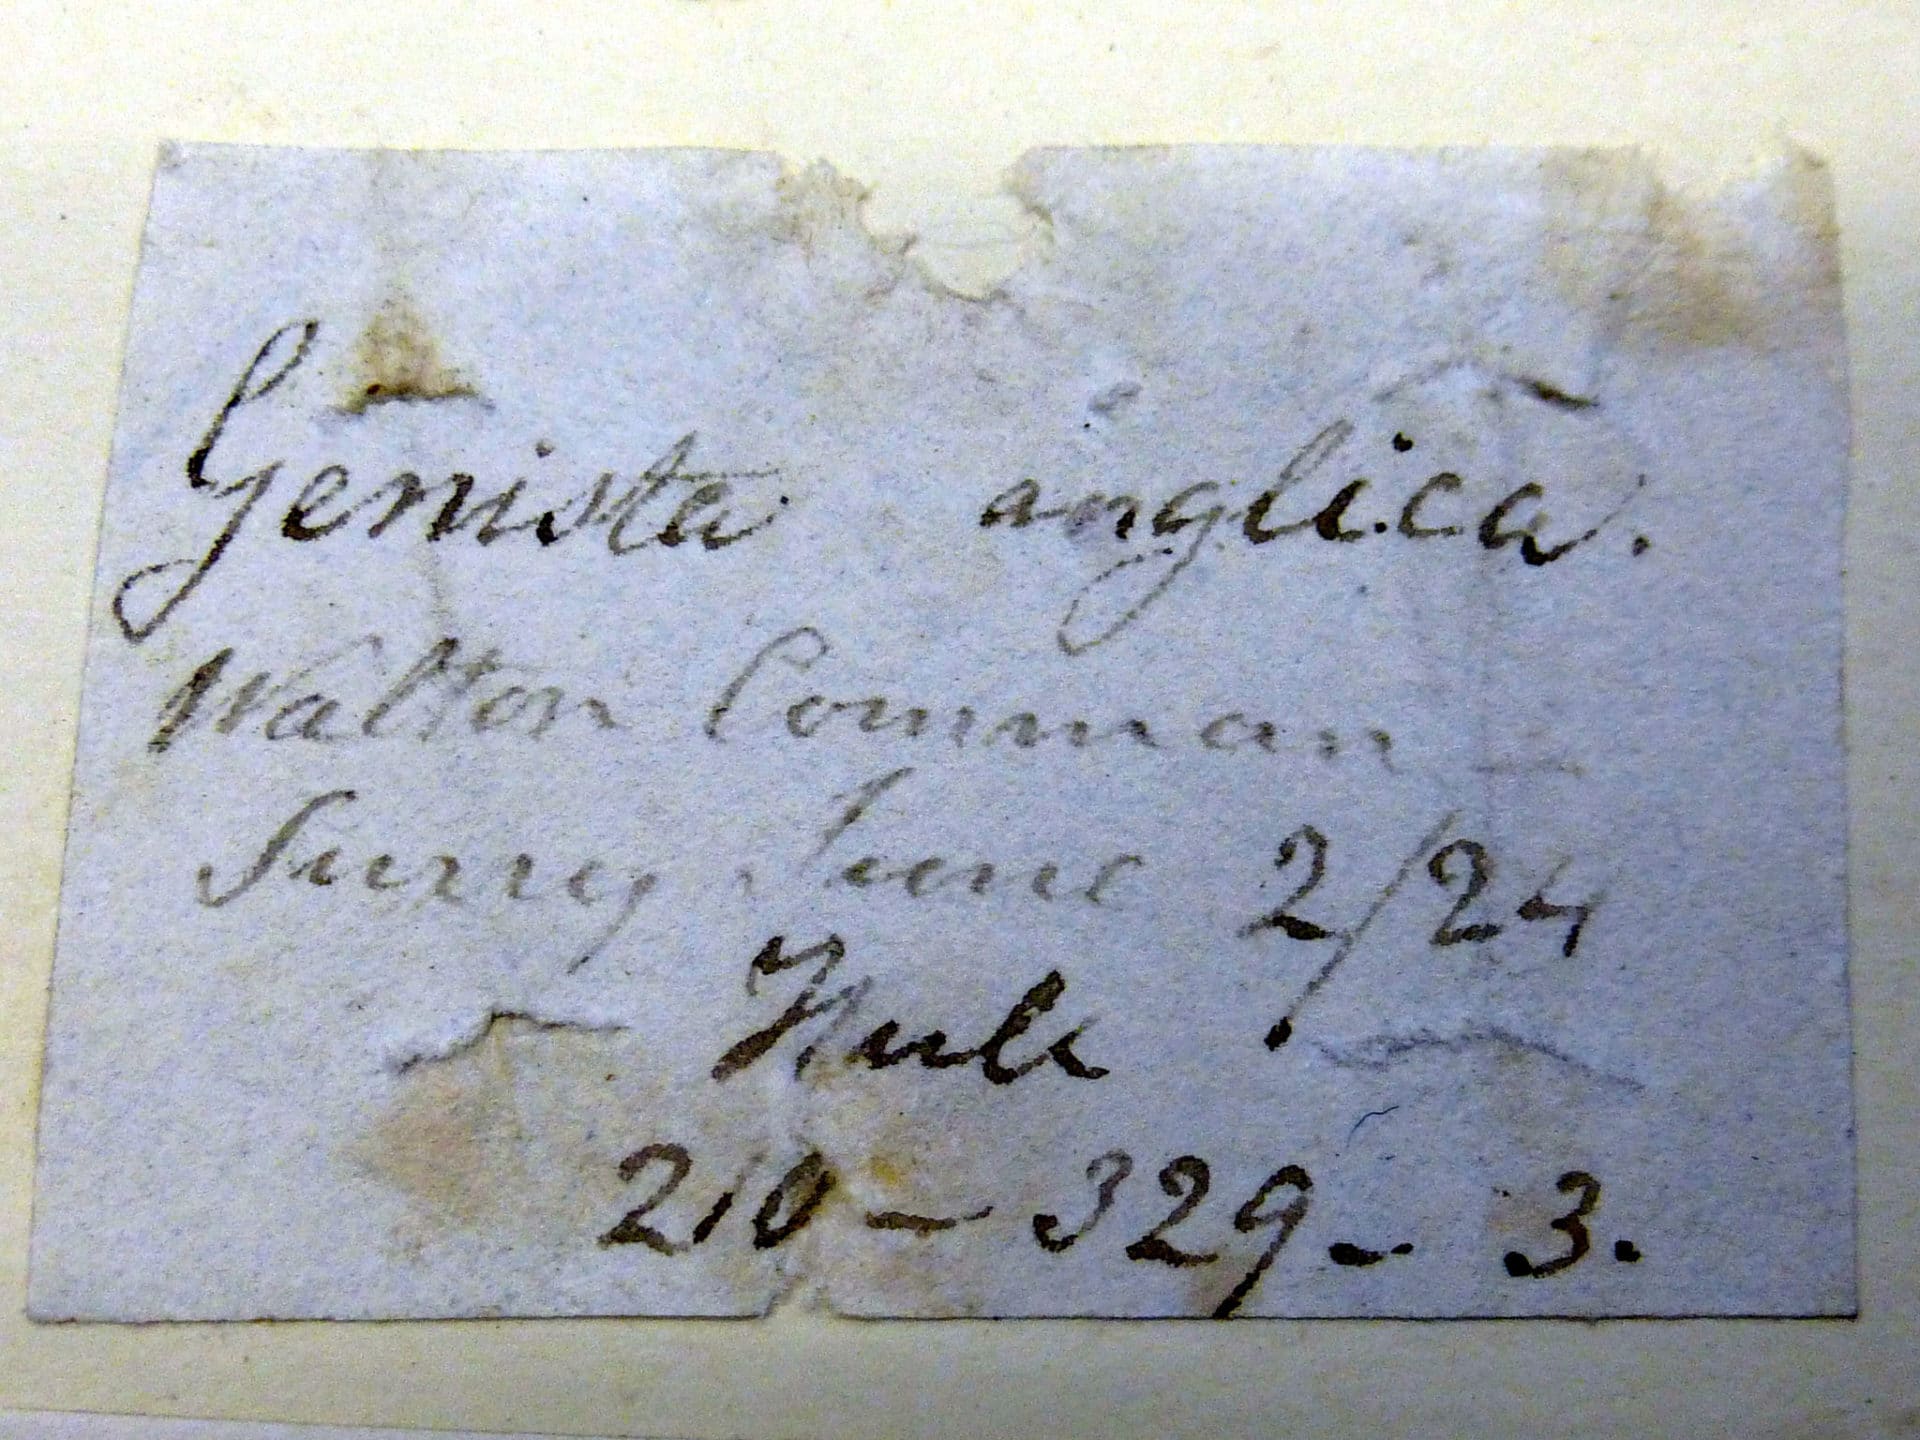 Genista anglica.
Walton Common
Surry June 2/24
210 - 329 - 3.